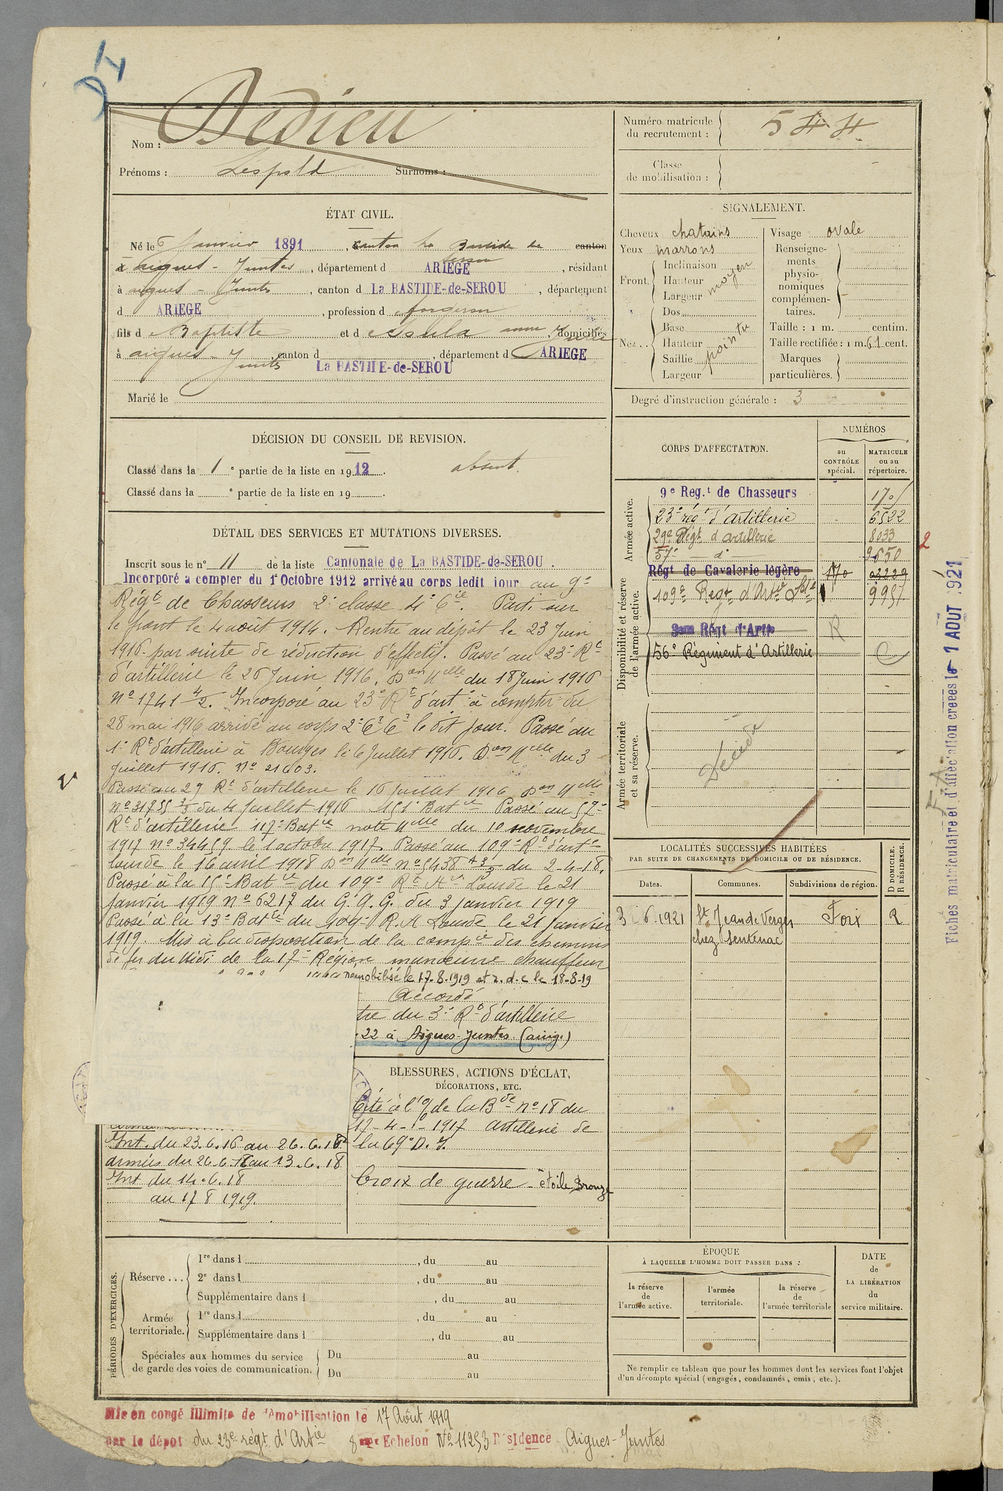 Dedieu
Nom :
Prénoms : Léopold Surnoms :
Numéro matricule
du recrutement : 544
Classe
de mobilisation :
ÉTAT CIVIL.
Né le 6 Janvier 1891, canton La Bastide de Serou canton
à Aigues-Juntes, département d ARIEGE, résidant
à Aigues-Juntes, canton d La BASTIDE-de-SEROU, département
d ARIEGE, profession d forgeron
fils d Baptiste et d domicilies
à Aigues-Juntes, canton d La BASTIDE-de-SEROU, département d ARIEGE
Marié le
SIGNALEMENT.
Cheveux chatains Visage ovale
Yeux marrons
Front. Inclinaison
Hauteur
Largeur
moyen
Nez.. Dos
Base
Hauteur
Saillie
Largeur
pointu
Renseigne-
ments
physio-
nomiques
complémen-
taires.
Taille : 1 m. centim.
Taille rectifiée : 1 m. 61 cent.
Marques
particulières.
Degré d'instruction générale : 3
DÉCISION DU CONSEIL DE REVISION.
Classé dans la 1e partie de la liste en 1912. absent.
Classé dans la e partie de la liste en 19
DÉTAIL DES SERVICES ET MUTATIONS DIVERSES.
Inscrit sous le n° 11 de la liste Cantonale de La BASTIDE-de-SEROU.
Incorporé à compter du 1er Octobre 1912 arrivé au corps ledit jour au 9e
Régt de Chasseurs 2e classe 4e Cie. Parti sur
le front le 4 août 1914. Rentré au dépôt le 23 Juin
1916 par suite de réduction d'effectif. Passé au 23e Rt
d'artillerie le 26 Juin 1916, Don Mlle du 18 Juin 1916
N° 1741 4/2. Incorporé au 23e Rt d'art. à compter du
28 mai 1916 arrivé au corps le dit jour. Passé au
1e Rt d'artillerie à Bourges le 6 Juillet 1916. Don Mlle du 3
Juillet 1916. N° 21603.
Passé au 29 Rt d'artillerie le 16 Juillet 1916 Don Mlle
du 4 Juillet 1916 Batie Passé au 57e
Rt d'artillerie 117e Batie note Mlle du 10 novembre
1917 n° 34459 le 1 octobre 1917. Passé au 109e Rt d'artie
lourde le 16 avril 1918 Don Mlle n° 5438 du 2-4-18.
Passé à la 15e Batie du 109e Rt Aie Lourde le 21
Janvier 1919 N° 6217 du G.Q.G. du 3 janvier 1919
Passé à la 13e Batie du 109e R.A. Lourde le 21 Janvier
1919. Mis à la disposition de la compie des chemins
de fer du Midi de la 17e Région manœuvre chauffeur
Démobilisé le 17.8.1919 et r.d.c le 18-8-19
Accordé
tre du 3e Rt d'artillerie
22 à Aigues-Juntes (Ariège)
BLESSURES, ACTIONS D'ÉCLAT,
DÉCORATIONS, ETC.
Cité à l'o/ de la Bde N° 18 du
17-4-1917 artillerie de
la 69e D.I.
Croix de guerre - étoile bronze
Int. du 23.6.16 au 26.6.16
armées du 26.6.16 au 13.6.18
Int du 14.6.18
au 17 8 1919.
CORPS D'AFFECTATION.
NUMÉROS
au
CONTRÔLE
spécial.
MATRICULE
ou au
répertoire.
Armée active.
9e Reg.t de Chasseurs 170
23e régt d'artillerie 6522
29e Régt d'artillerie 8033
57e d° 9650
Disponibilité et réserve
de l'armée active.
Régt de Cavalerie légère
109e Regt d'Artie Lde 9957
56e Régiment d'Artillerie
Armée territoriale
et sa réserve.
Décédé
LOCALITÉS SUCCESSIVES HABITÉES
PAR SUITE DE CHANGEMENTS DE DOMICILE OU DE RÉSIDENCE.
Dates. Communes. Subdivisions de région. D DOMICILE. R RÉSIDENCE.
3 6.1921 St Jean de Verges Foix R
chez Sentenac
PÉRIODES D'EXERCICES.
Réserve... 1re dans l , du au
2e dans l , du au
Supplémentaire dans l , du au
Armée
territoriale. 1re dans l , du au
Supplémentaire dans l , du au
Spéciales aux hommes du service
de garde des voies de communication. Du au
Du au
ÉPOQUE
À LAQUELLE L'HOMME DOIT PASSER DANS :
la réserve
de
l'armée active.
l'armée
territoriale.
la réserve
de
l'armée territoriale
DATE
de
LA LIBÉRATION
du
service militaire.
Ne remplir ce tableau que pour les hommes dont les services font l'objet
d'un décompte spécial (engagés, condamnés, omis, etc.).
Mis en congé illimité de démobilisation le 17 Août 1919
par le dépôt du 23e régt d'Artie 8eme Echelon N° 11253 Résidence Aigues-Juntes
Fiches matriculaire et d'affectation créées le 1 AOUT 1921
2